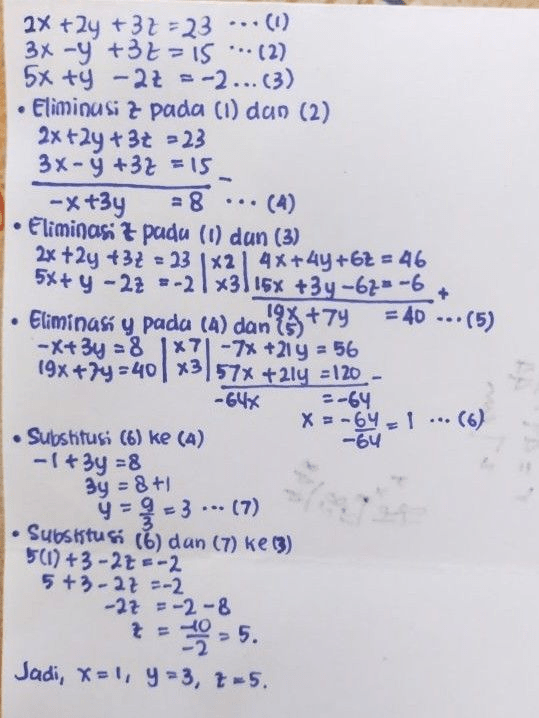 2x + 2y + 3z = 23 ... (1)
3x - y + 3z = 15 ... (2)
5x + y - 2z = -2 ... (3)
• Eliminasi z pada (1) dan (2)
2x + 2y + 3z = 23
3x - y + 3z = 15 -
-x + 3y = 8 ... (4)
• Eliminasi z pada (1) dan (3)
2x + 2y + 3z = 23 | x2 | 4x + 4y + 6z = 46
5x + y - 2z = -2 | x3 | 15x + 3y - 6z = -6 +
19x + 7y = 40 ... (5)
• Eliminasi y pada (4) dan (5)
-x + 3y = 8 | x7 | -7x + 21y = 56
19x + 7y = 40 | x3 | 57x + 21y = 120 -
-64x = -64
x = -64/-64 = 1 ... (6)
• Substitusi (6) ke (4)
-1 + 3y = 8
3y = 8 + 1
y = 9/3 = 3 ... (7)
• Substitusi (6) dan (7) ke (3)
5(1) + 3 - 2z = -2
5 + 3 - 2z = -2
-2z = -2 - 8
z = -10/-2 = 5.
Jadi, x = 1, y = 3, z = 5.